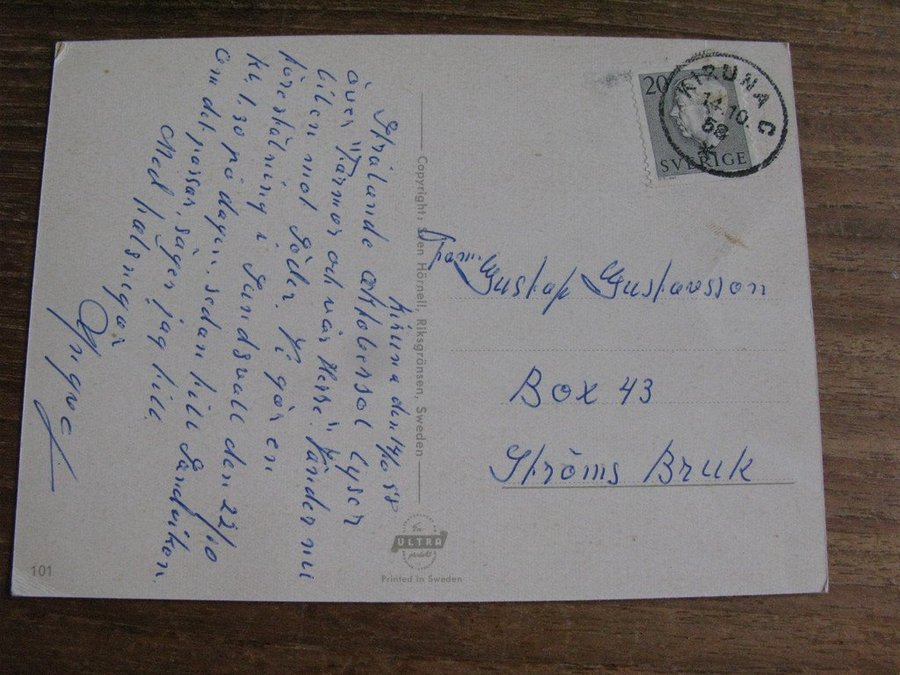 Kiruna den 14/10 58
Strålande oktobersol lyser
över "Farmor och vår Herre". Vänder nu
bilen mot Söder. Vi gör en
föreställning i Sundsvall den 22/10
kl 1,30 på dagen. sedan till Sandviken.
om det passar, säger jag till
Med hälsningar
Yngve
Copyright: Sven Hörnell, Riksgränsen, Sweden
ULTRA
Printed in Sweden
101
20
SVERIGE
KIRUNA C
14.10.
58
Fam. Gustaf Gustavsson
Box 43
Ströms Bruk